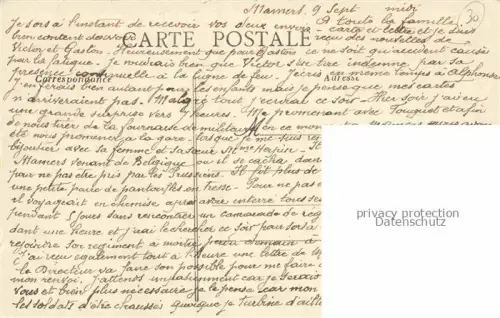 Mamers, 9 Sept midi
Je sors à l'instant de recevoir vos deux envois - carte et lettre et je suis
A toute la famille,
bien content d'avoir reçu des nouvelles de
CARTE POSTALE
Victor et Gaston. Heureusement que pour Gaston ce ne soit qu'accident causé
par la fatigue. Je voudrais bien que Victor s'en tire indemne par sa
présence continuelle à la ligne de feu. J'écris en même temps à Alphonse
Correspondance
Adresse
J'en ferais bien autant pour les enfants mais je pense que mes cartes
n'arriveraient pas. Malgré tout j'écrirai ce soir. Hier soir j'ai eu
une grande surprise vers 7 heures. Me promenant avec Fouquet et afin
de nous tirer de la fournaise de militaires en ce mom
été nous promener à la gare lorsque je me suis
bijoutier avec sa femme et sa sœur Mme Harpin. Il
Mamers venant de Belgique où il se cacha dan
par ne pas être pris par les Prussiens. Il fit plus de
une petite paire de pantoufles en tresse. Pour ne pas
il voyageait en chemise après avoir enterré tous ses
pendant 5 jours sans rencontrer un camarade de rég
dant une heure et j'irai le chercher ce soir pour
rejoindre son régiment à
J'ai reçu également tout à l'heure une lettre de
le Directeur va faire son possible pour me faire
mon renvoi. J'attends impatiemment car je serais
vous et bien plus nécessaire je le pense car mon
les soldats d'être chaussés quoique je turbine d'ail
privacy protection
Datenschutz